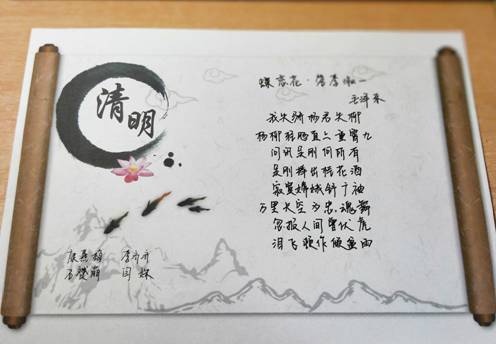 清明
蝶恋花·答李淑一
毛泽东
我失骄杨君失柳
杨柳轻飏直上重霄九
问讯吴刚何所有
吴刚捧出桂花酒
寂寞嫦娥舒广袖
万里长空为忠魂舞
忽报人间曾伏虎
泪飞顿作倾盆雨